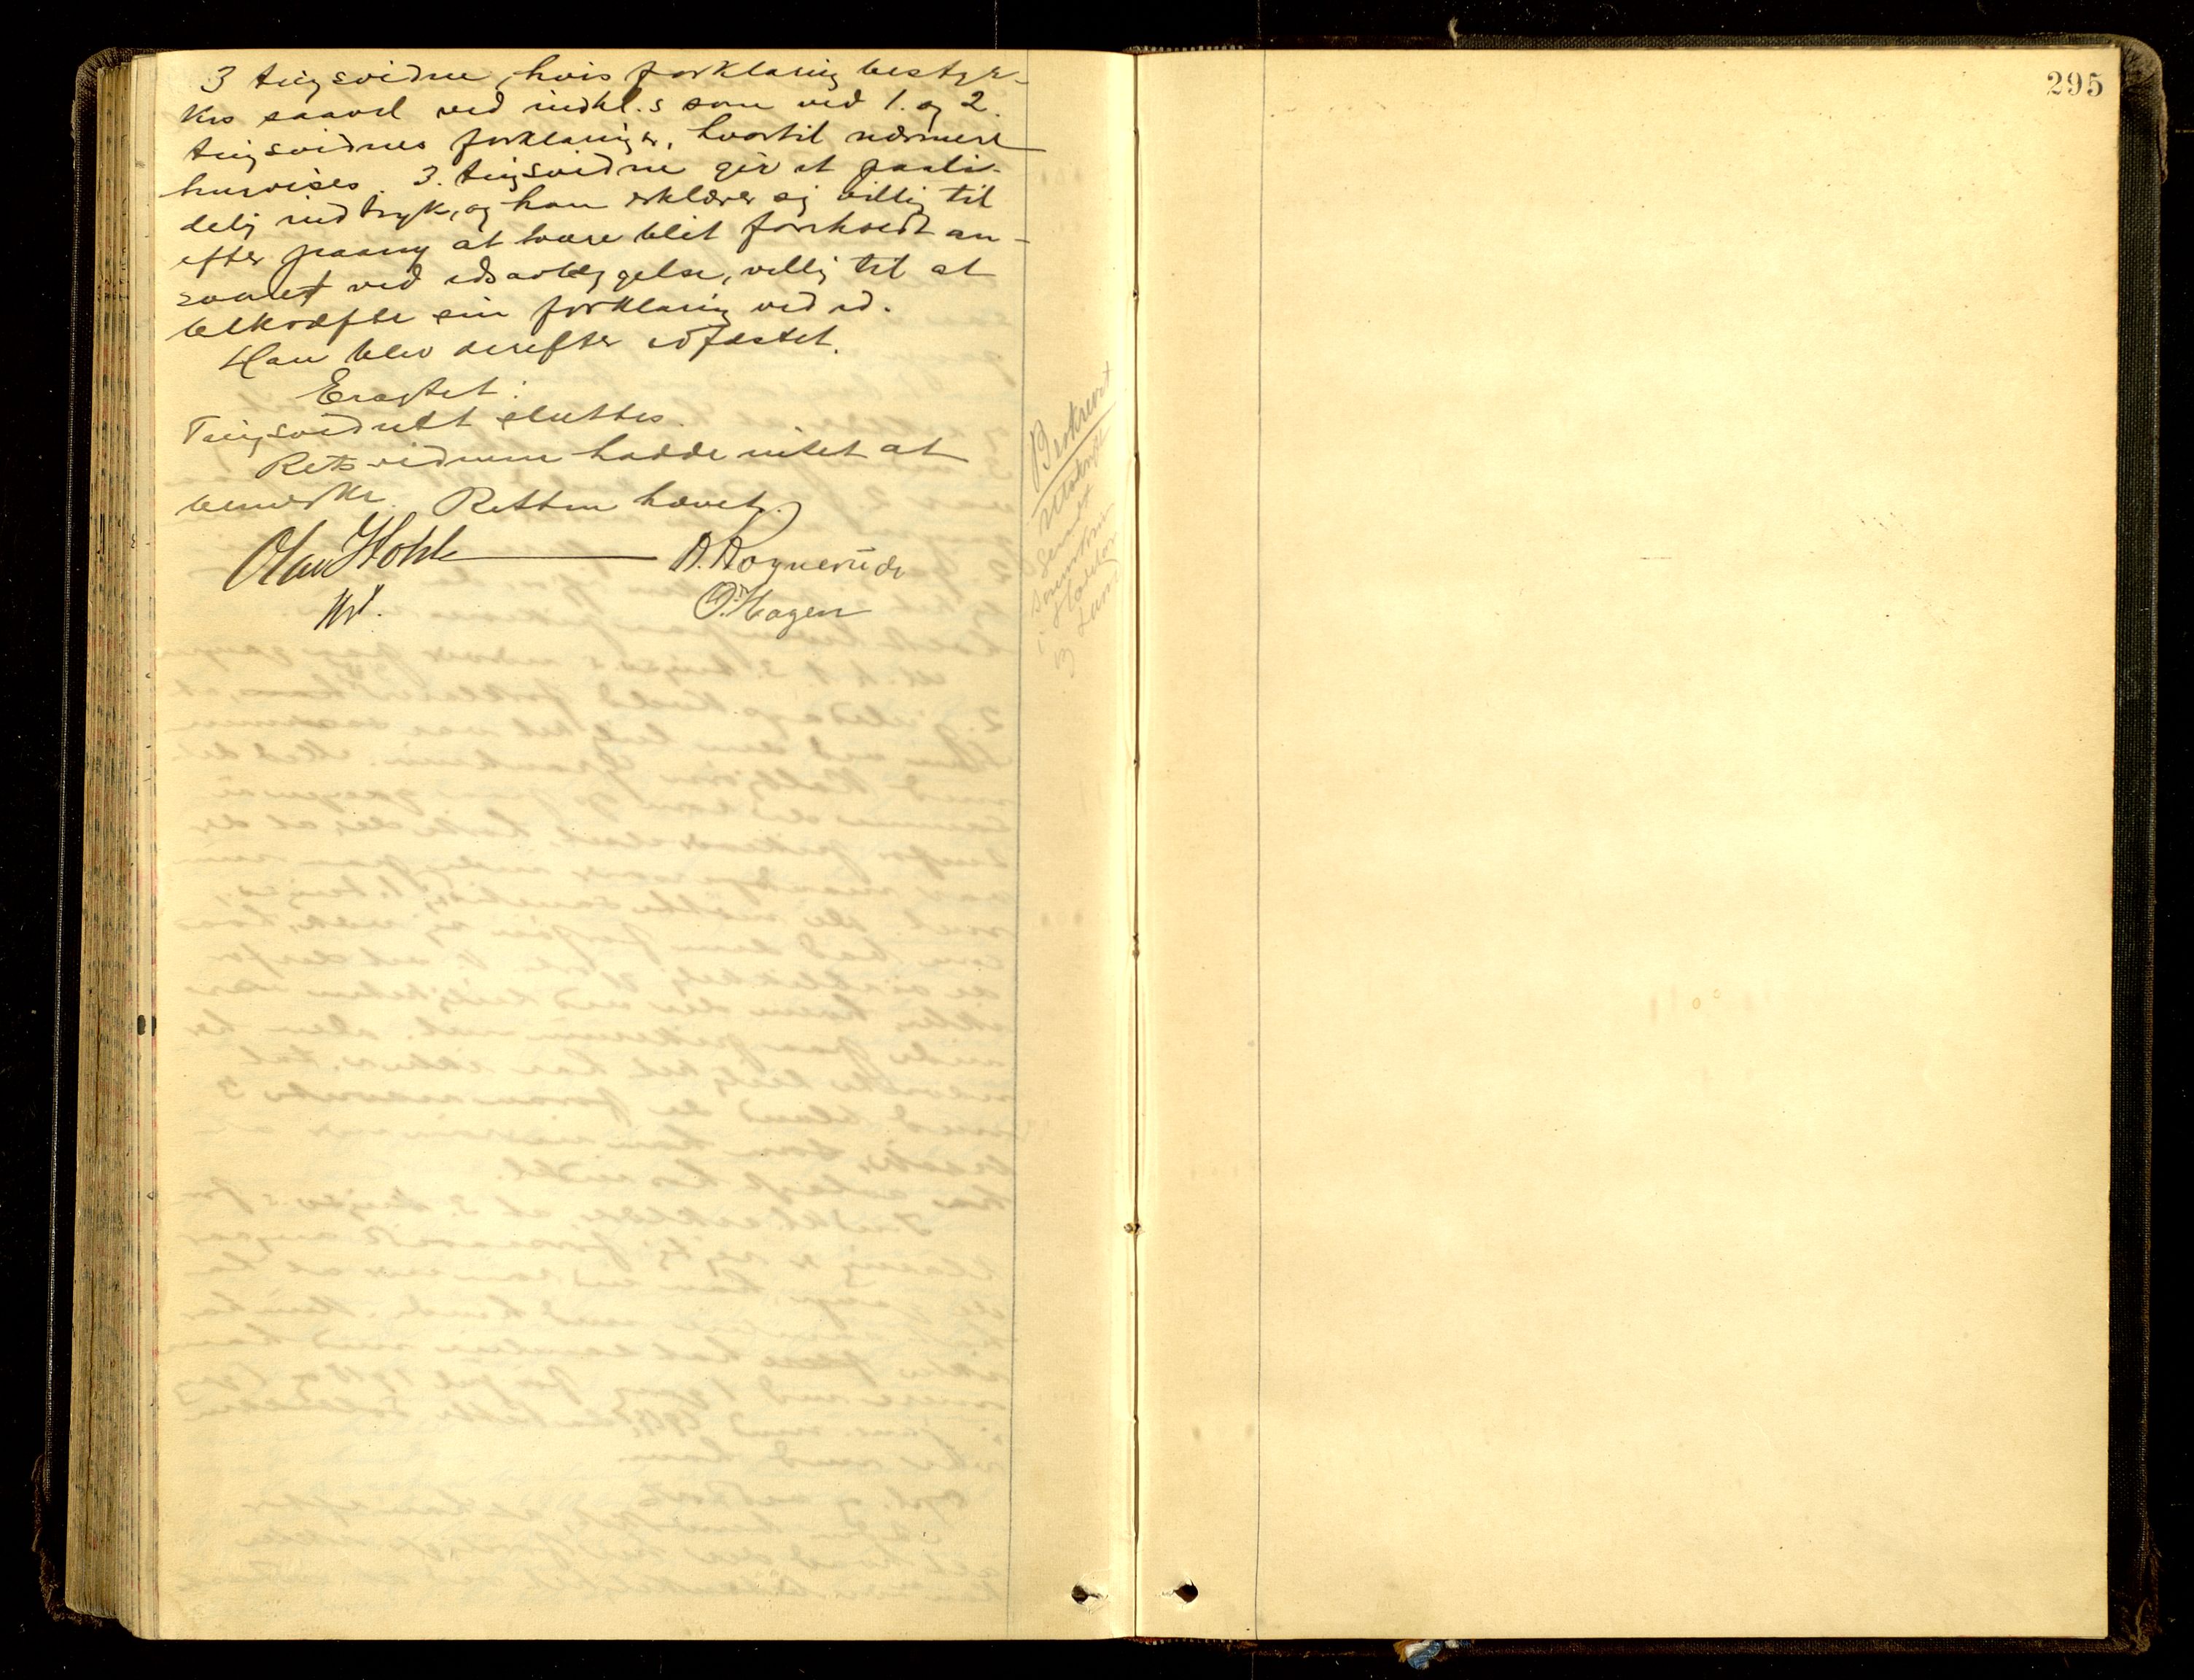 3 tingsvidne, hvis forklaring bestyr-
kes saavel ved indkl.s som ved 1. og 2.
tingsvidnes forklaringer, hvortil nærmere
henvises. 3. tingsvidne gir et paali-
delig indtryk, og han erklærer sig villig til
efter paany at være blit foreholdt an-
svaret ved edsavlæggelse, villig til at
bekræfte sin forklaring ved ed.
Han blev derefter edfæstet.
Eragtet:
Tingsvidnet sluttes.
Retsvidnene hadde intet at
bemerke. Retten hævet.
Olav Hohle A. Rognerud
O. Hagen
Beskrevet
Utskrift
sendt
i
og
295